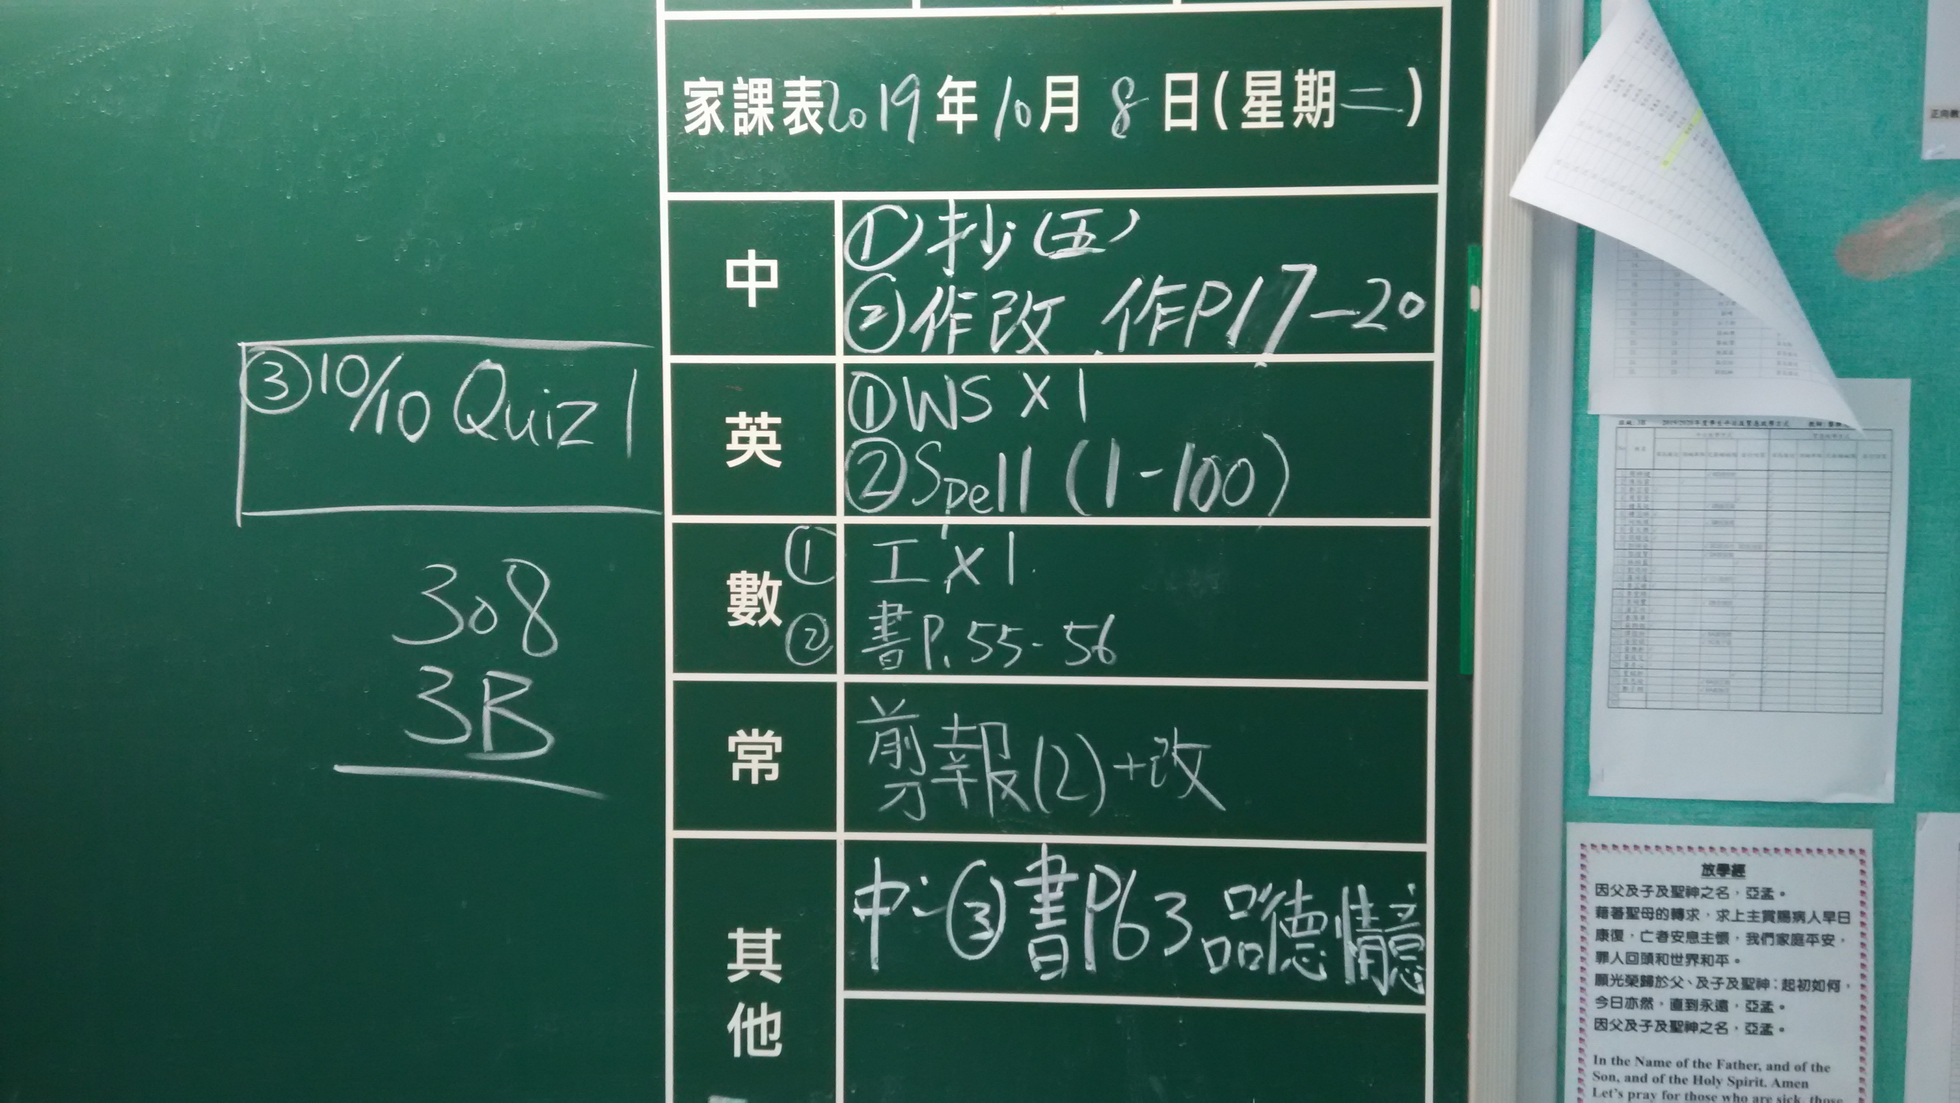 家課表2019年10月8日(星期二)
中
①抄(五)
②作改 作P17-20
英
①WS X 1
②Spell (1-100)
③10/10 Quiz 1
數
① 工 X 1
② 書P.55-56
常
剪報(2)+改
其他
中:③書P63品德情意
308
3B
正向教
放學經
因父及子及聖神之名，亞孟。
藉著聖母的轉求，求上主賞賜病人早日
康復，亡者安息主懷，我們家庭平安，
罪人回頭和世界和平。
願光榮歸於父、及子及聖神；起初如何，
今日亦然，直到永遠，亞孟。
因父及子及聖神之名，亞孟。
In the Name of the Father, and of the
Son, and of the Holy Spirit, Amen
Let's pray for those who are sick, those